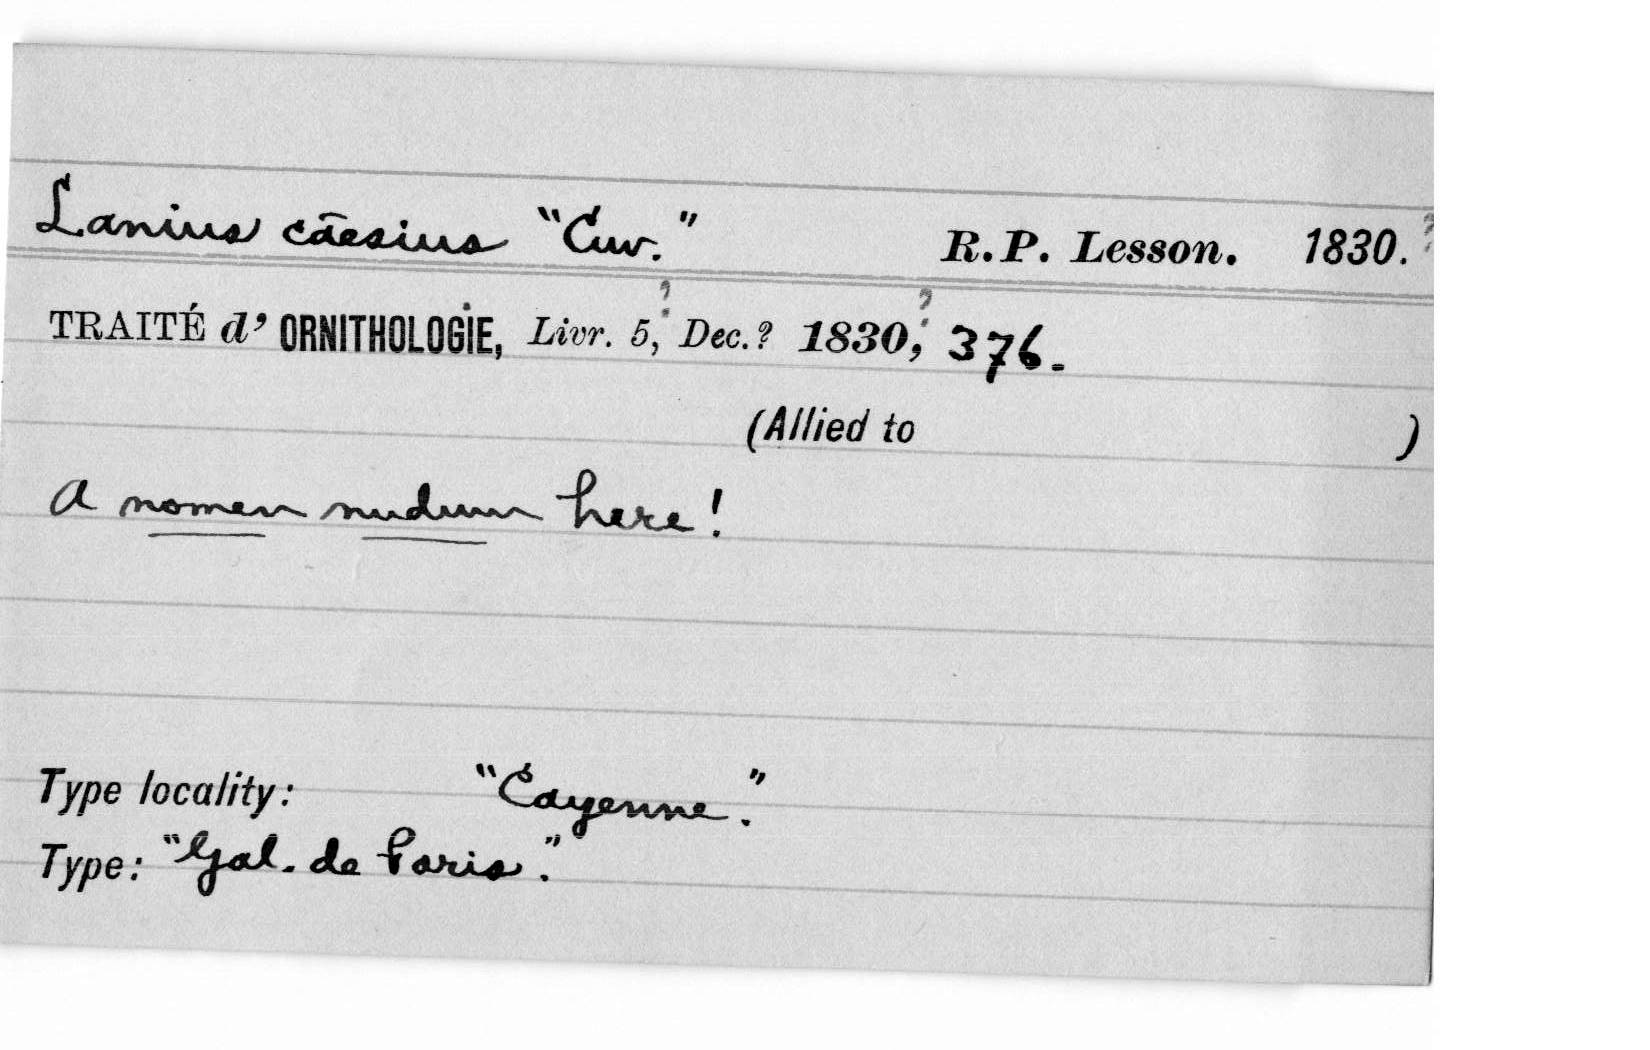 Lanius cāesius "Cuv." R.P. Lesson. 1830.?
TRAITÉ d' ORNITHOLOGIE, Livr. 5,? Dec.? 1830,? 376.
(Allied to )
A nomen nudum here!
Type locality: "Cayenne."
Type: "Gal. de Paris."